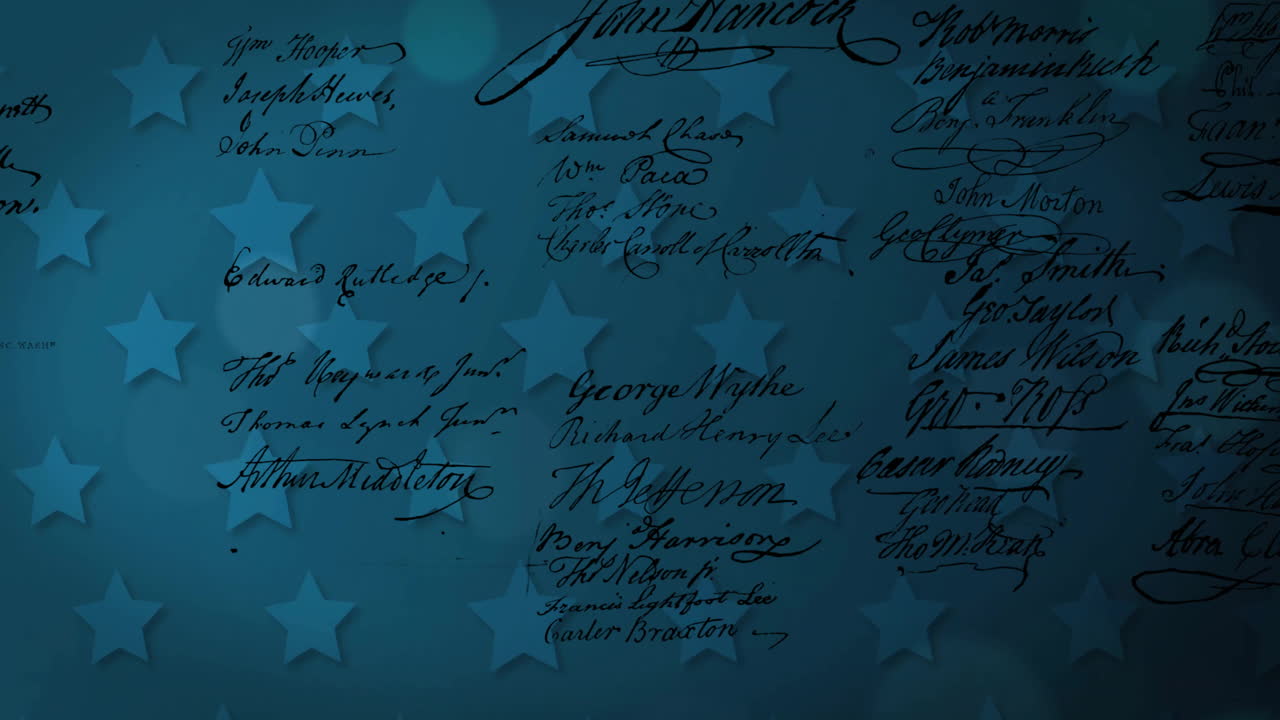 Wm Hooper
Joseph Hewes,
John Penn
Edward Rutledge /.
Thos Heyward Junr.
Thomas Lynch Junr.
Arthur Middleton
John Hancock
Samuel Chase
Wm Paca
Thos Stone
Charles Carroll of Carrollton
George Wythe
Richard Henry Lee
Th Jefferson
Benja Harrison
Thos Nelson jr.
Francis Lightfoot Lee
Carter Braxton
Robt Morris
Benjamin Rush
Benja Franklin
John Morton
Geo Clymer
Jas Smith
Geo. Taylor
James Wilson
Geo. Ross
Caesar Rodney
Geo Read
Tho M:Kean
Phil.
Lewis
Richd Stoc
Jno Wither
Fras Hop
John H
Abra Cl